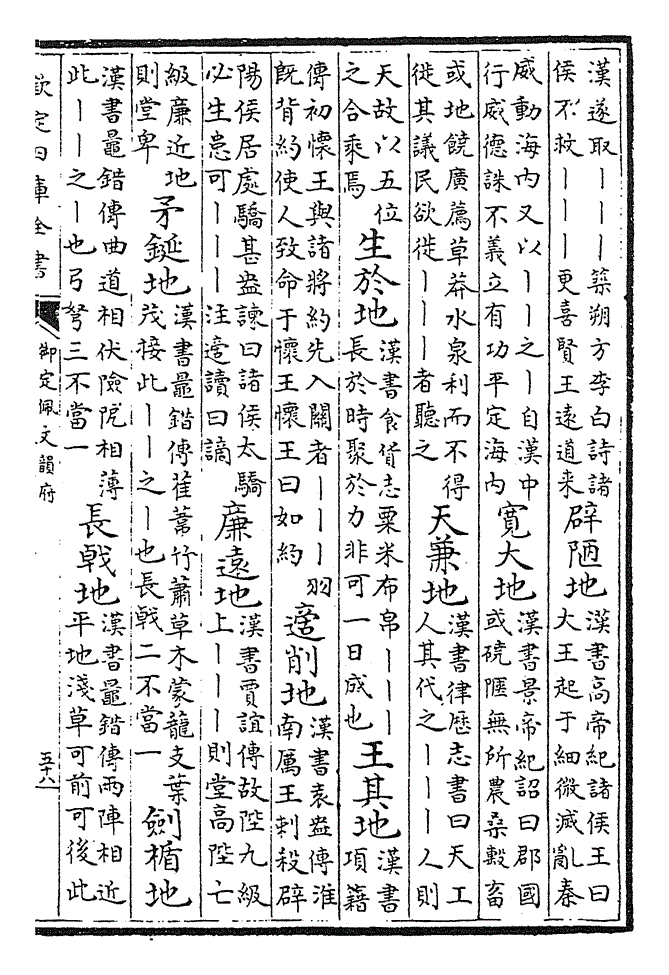 漢遂取｜｜｜築朔方李白詩諸
侯不救｜｜｜更喜賢王遠道来
辟陋地
漢書高帝紀諸侯王曰
大王起于細微滅亂秦
威動海内又以｜｜之｜自漢中
行威德誅不義立有功平定海内
寛大地
漢書景帝紀詔曰郡國
或磽陿無所農桑毄畜
或地饒廣薦草莽水泉利而不得
徙其議民欲徙｜｜｜者聽之
天兼地
漢書律歴志書曰天工
人其代之｜｜｜人則
天故以五位
之合乘焉
生於地
漢書食貨志粟米布帛｜｜｜
長於時聚於力非可一日成也
王其地
漢書
項籍
傳初懷王與諸將約先入關者｜｜｜羽
既背約使人致命于懷王懷王曰如約
適削地
漢書袁盎傳淮
南厲王刺殺辟
陽侯居處驕甚盎諫曰諸侯太驕
必生患可｜｜｜注適讀曰謫
廉遠地
漢書賈誼傳故陛九級
上｜｜｜則堂高陛亡
級廉近地
則堂卑
矛鋋地
漢書鼂錯傳萑葦竹蕭草木蒙蘢支葉
茂接此｜｜之｜也長戟二不當一
劍楯地
漢書鼂錯傳曲道相伏險阨相薄
此｜｜之｜也弓弩三不當一
長戟地
漢書鼂錯傳兩陣相近
平地淺草可前可後此
欽定四庫全書
御定佩文韻府
五十八